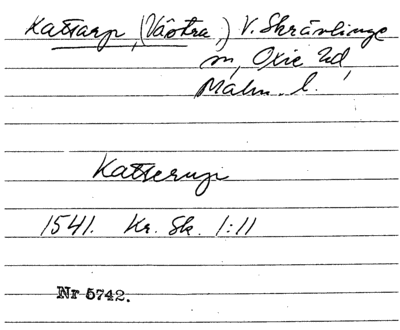 Kattarp, (Västra,) V. Skrävlinge
sn, Oxie hd,
Malm. l.
Katterup
1541. Kr. Sk. 1:11
Nr 5742.